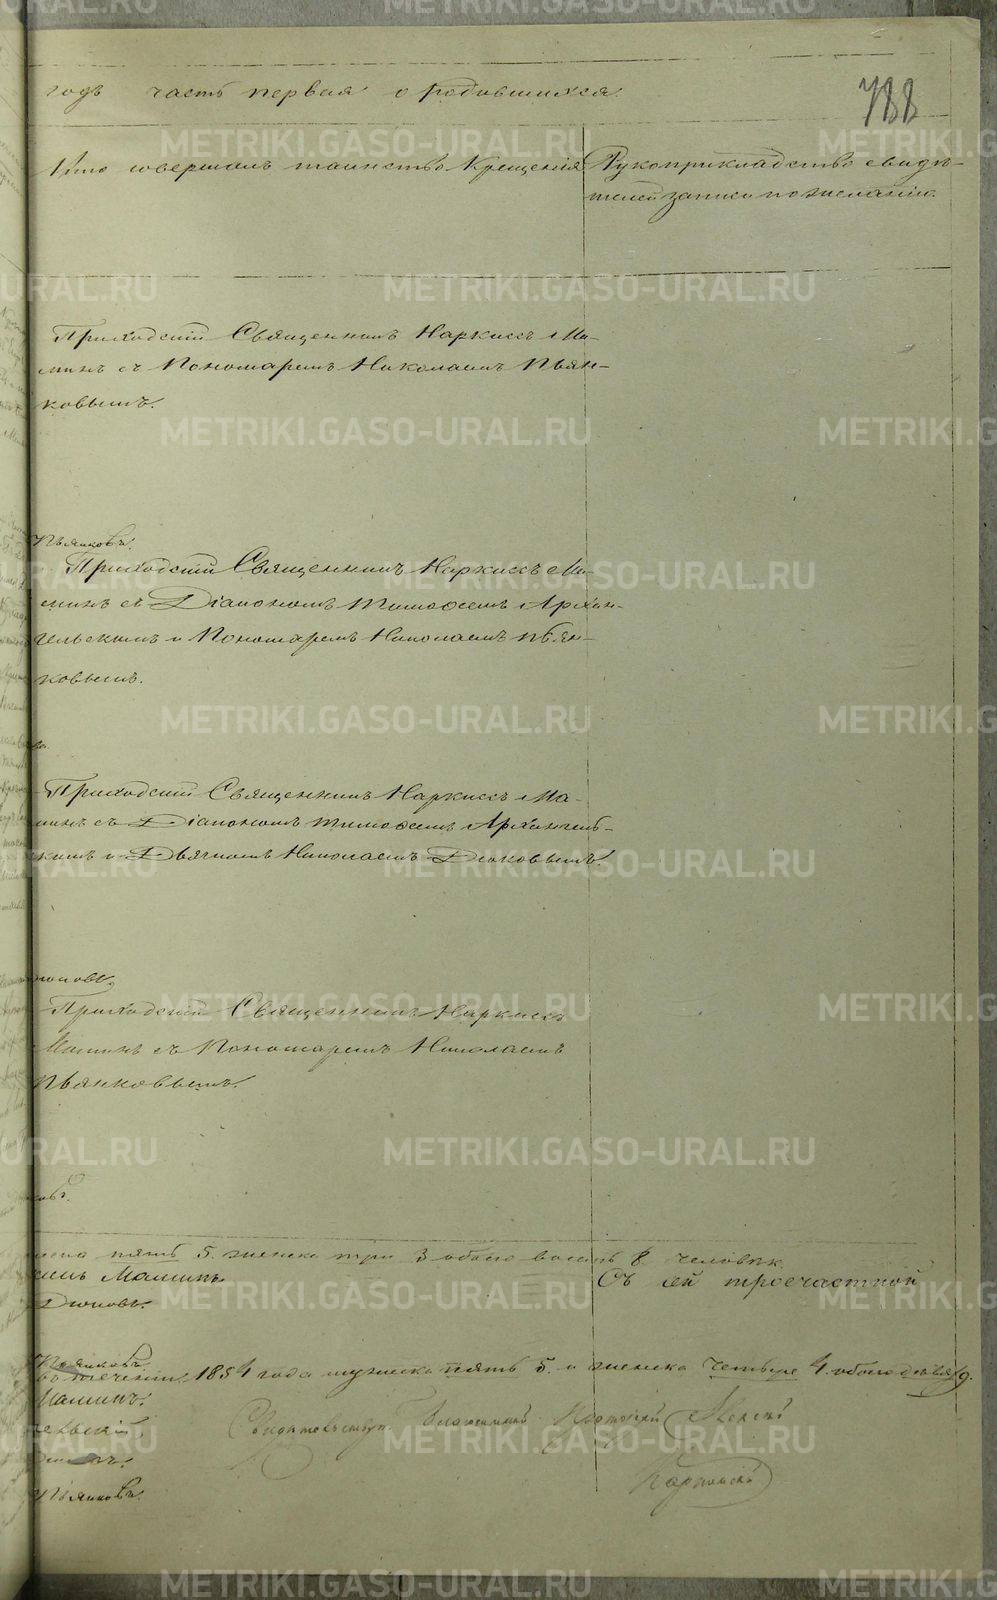 годъ часть первая о родившихся
788
Кто совершалъ таинство Крещенія
Рукоприкладство свидѣ-
телей записи по желанію.
Приходскій Священникъ Наркиссъ Ма-
минъ съ Пономаремъ Николаемъ Пьян-
ковымъ.
Пьянковъ.
Приходскій Священникъ Наркиссъ Ма-
минъ съ Діакономъ Тимофеемъ Архан-
гельскимъ и Пономаремъ Николаемъ Пьян-
ковымъ.
Приходскій Священникъ Наркиссъ Ма-
минъ съ Діакономъ Тимофеемъ Архангель-
скимъ и Дьячкомъ Николаемъ Дюковымъ.
Приходскій Священникъ Наркиссъ
Маминъ съ Пономаремъ Николаемъ
Пьянковымъ.
пять 5. женска три 3 обоего восемь 8 человѣк.
Маминъ.
Съ ей троечастной
Дюковъ.
Пьянковъ.
въ теченіи 1854 года мужеска пять 5. и женска четыре 4. обоего девять 9.
Маминъ.
Свидѣтельствун. Благочинный Протоіерей Алексѣй
Карпинскій
Пьянковъ.
METRIKI.GASO-URAL.RU